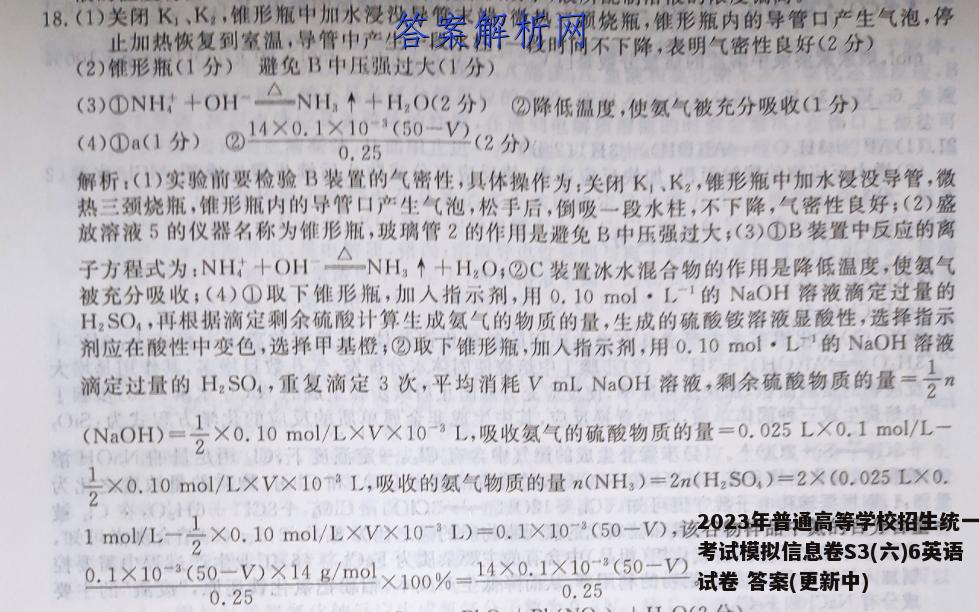 18.(1)关闭 K₁、K₂,锥形瓶中加水浸没导管末端,微热三颈烧瓶,锥形瓶内的导管口产生气泡,停
答案解析网
止加热恢复到室温,导管中产生一段水柱,一段时间不下降,表明气密性良好(2 分)
(2)锥形瓶(1 分) 避免 B 中压强过大(1 分)
(3)①NH₄⁺+OH⁻=△=NH₃↑+H₂O(2 分) ②降低温度,使氨气被充分吸收(1 分)
(4)①a(1 分) ②14×0.1×10⁻³(50-V)/0.25(2 分)
解析:(1)实验前要检验 B 装置的气密性,具体操作为:关闭 K₁、K₂,锥形瓶中加水浸没导管,微
热三颈烧瓶,锥形瓶内的导管口产生气泡,松手后,倒吸一段水柱,不下降,气密性良好;(2)盛
放溶液 5 的仪器名称为锥形瓶,玻璃管 2 的作用是避免 B 中压强过大;(3)①B 装置中反应的离
子方程式为:NH₄⁺+OH⁻=△=NH₃↑+H₂O;②C 装置冰水混合物的作用是降低温度,使氨气
被充分吸收;(4)①取下锥形瓶,加入指示剂,用 0.10 mol·L⁻¹的 NaOH 溶液滴定过量的
H₂SO₄,再根据滴定剩余硫酸计算生成氨气的物质的量,生成的硫酸铵溶液显酸性,选择指示
剂应在酸性中变色,选择甲基橙;②取下锥形瓶,加入指示剂,用 0.10 mol·L⁻¹的 NaOH 溶液
滴定过量的 H₂SO₄,重复滴定 3 次,平均消耗 V mL NaOH 溶液,剩余硫酸物质的量=1/2 n
(NaOH)=1/2×0.10 mol/L×V×10⁻³ L,吸收氨气的硫酸物质的量=0.025 L×0.1 mol/L-
1/2×0.10 mol/L×V×10⁻³ L,吸收的氨气物质的量 n(NH₃)=2n(H₂SO₄)=2×(0.025 L×0.
1 mol/L-1/2×0.10 mol/L×V×10⁻³ L)=0.1×10⁻³(50-V),该谷物样品中氮的百分含量
0.1×10⁻³(50-V)×14 g/mol/0.25×100%=14×0.1×10⁻³(50-V)/0.25
2023年普通高等学校招生统一
考试模拟信息卷S3(六)6英语
试卷 答案(更新中)